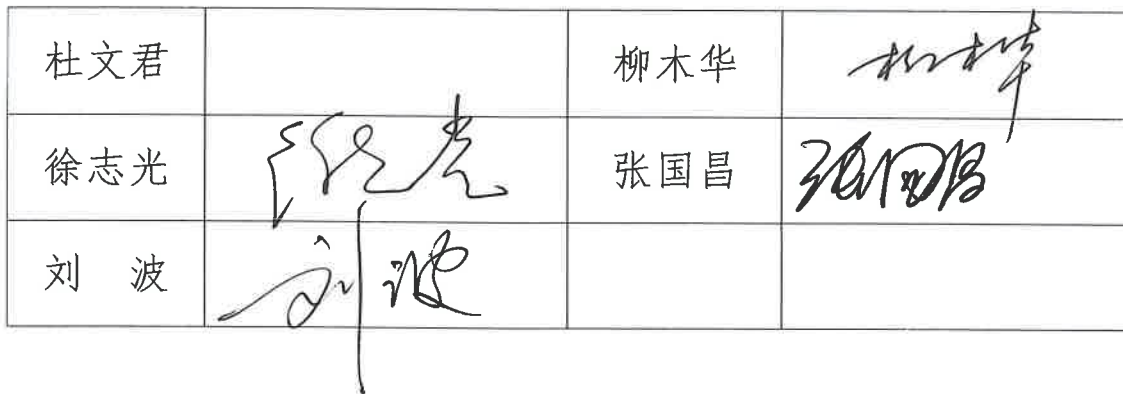 杜文君 柳木华 柳木华
徐志光 徐志光 张国昌 张国昌
刘 波 刘波